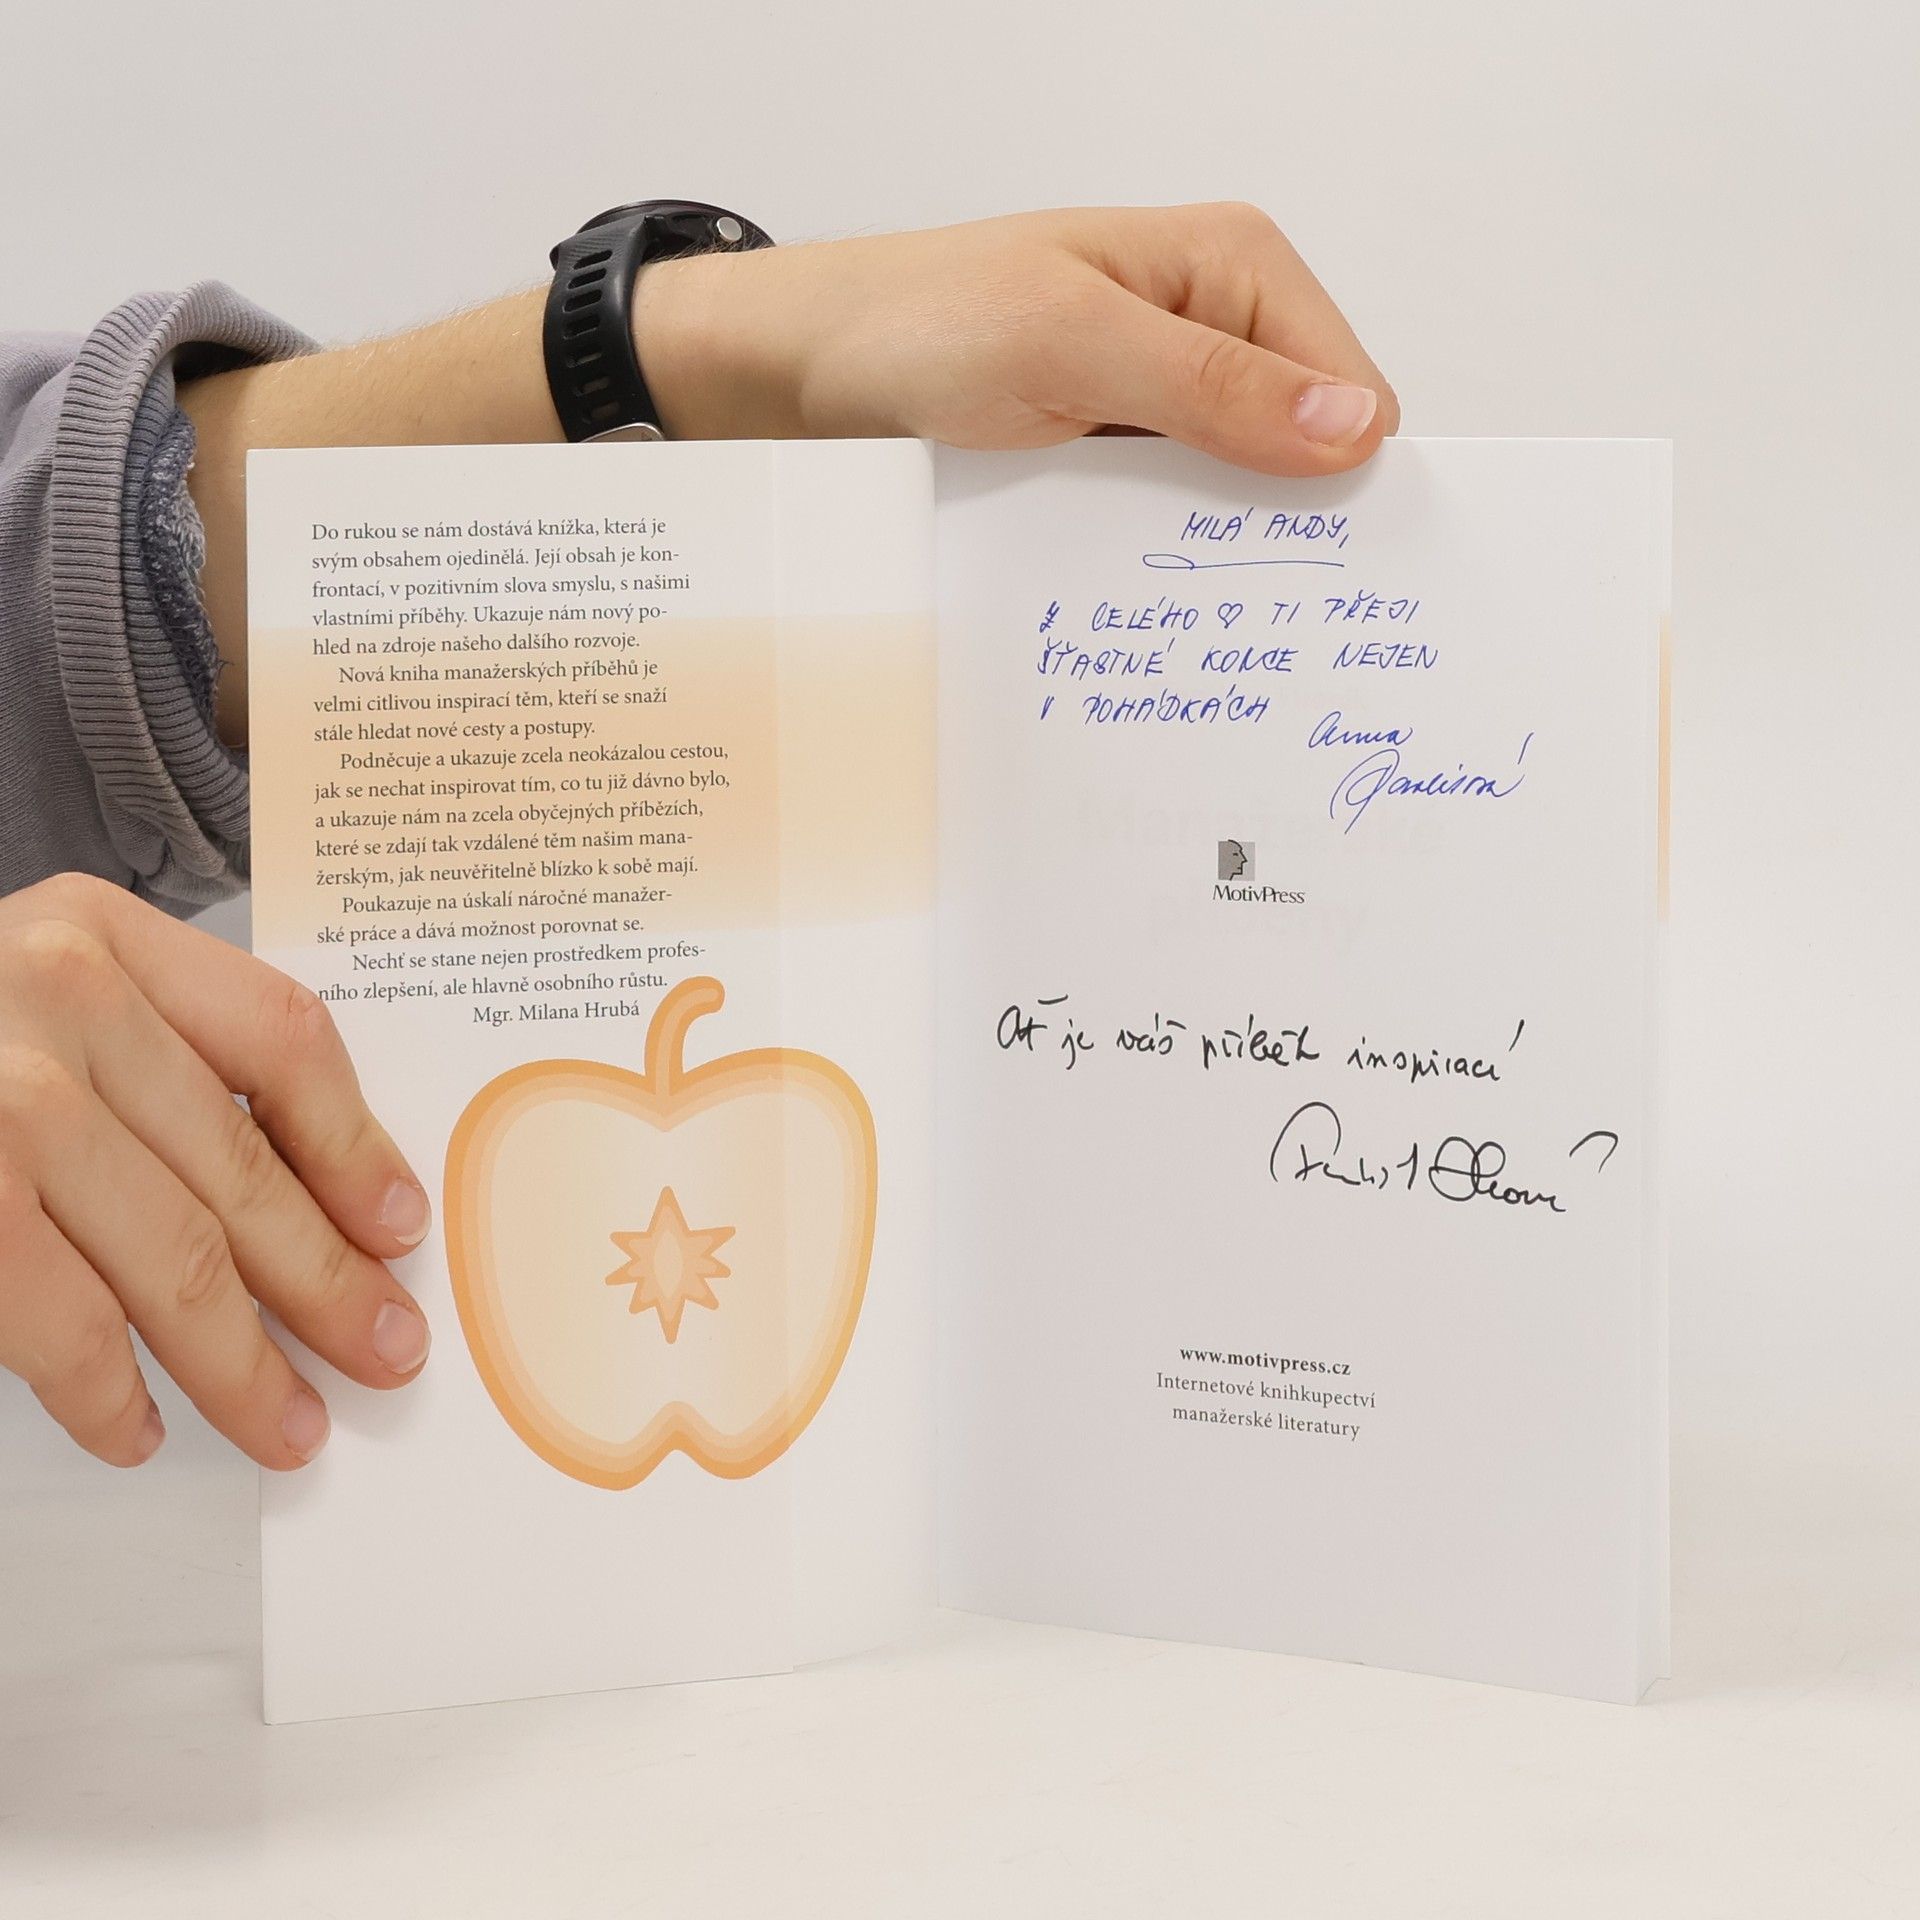 Do rukou se nám dostává knížka, která je
svým obsahem ojedinělá. Její obsah je kon-
frontací, v pozitivním slova smyslu, s našimi
vlastními příběhy. Ukazuje nám nový po-
hled na zdroje našeho dalšího rozvoje.
Nová kniha manažerských příběhů je
velmi citlivou inspirací těm, kteří se snaží
stále hledat nové cesty a postupy.
Podněcuje a ukazuje zcela neokázalou cestou,
jak se nechat inspirovat tím, co tu již dávno bylo,
a ukazuje nám na zcela obyčejných příbězích,
které se zdají tak vzdálené těm našim mana-
žerským, jak neuvěřitelně blízko k sobě mají.
Poukazuje na úskalí náročné manažer-
ské práce a dává možnost porovnat se.
Nechť se stane nejen prostředkem profes-
ního zlepšení, ale hlavně osobního růstu.
Mgr. Milana Hrubá
MILÁ ANDY,
Z CELÉHO ♡ TI PŘEJI
ŠŤASTNÉ KONCE NEJEN
V POHÁDKÁCH
Anna
MotivPress
Ať je váš příběh inspirací
www.motivpress.cz
Internetové knihkupectví
manažerské literatury